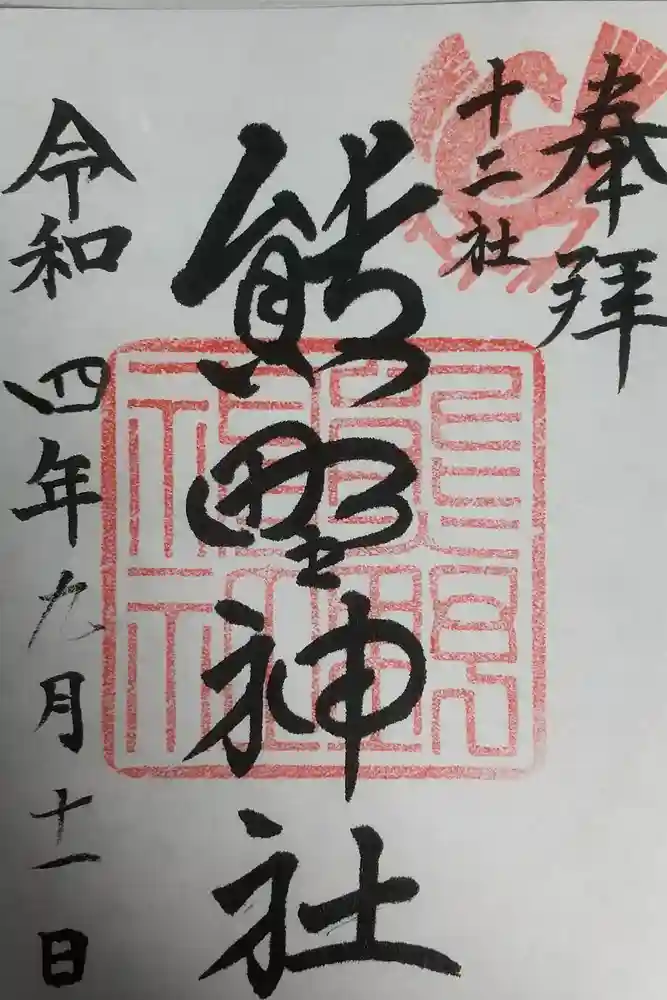 奉拝
十二社
熊野神社
令和四年九月十一日